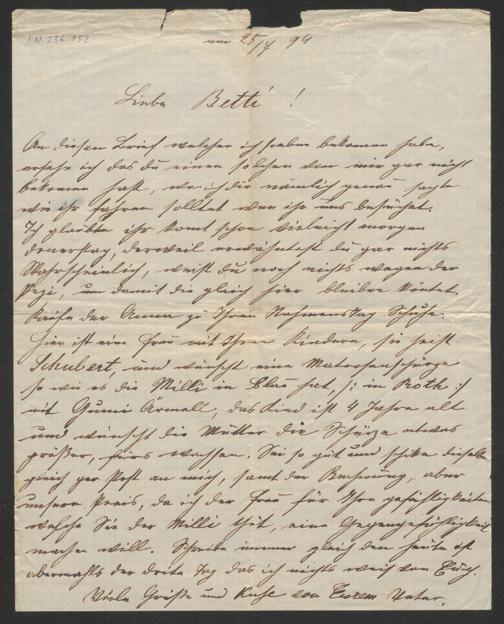 I.N. 236.152
am 25/7 94
Liebe Betti!
An diesen Brief welchen ich soeben bekomen habe,
ersehe ich das du einen solchen von mir gar nicht
bekomen hast, wo ich dir nämlich genau sagte
wie ihr fahren solltet wen ihr uns besuchet.
Ich glaubte ihr komt schon vieleicht morgen
donerstag, derweil erwähntest du gar nichts
Wahrscheinlich, weist du noch nichts wegen der
Pepi, um damit die gleich hier bleiben köntet.
Kaufe der Anna zu Ihren Nahmenstag Schuhe.
Hier ist eine Frau mit Ihren Kindern, sie heist
Schubert, und wünscht eine Matrosenschürze
so wie es die Milli in Blau hat, /: in Roth :/
mit Gumi Ärmell, das Kind ist 4 Jahre alt
und wünscht die Mutter die Schürze etwas
größer, fürs wachsen. Sei so gut und schike dieselbe
gleich per Post an mich, samt der Rechnung, aber
unsern Preis, da ich der Frau für Ihre gefähligkeiten
welche Sie der Milli thut, eine Gegengefähligkeit
machen will. Schreibe immer gleich den heute ist
abermahls der dritte Tag das ich nichts weis von Euch.
Viele Grüße und Küße von Eurem Vater.